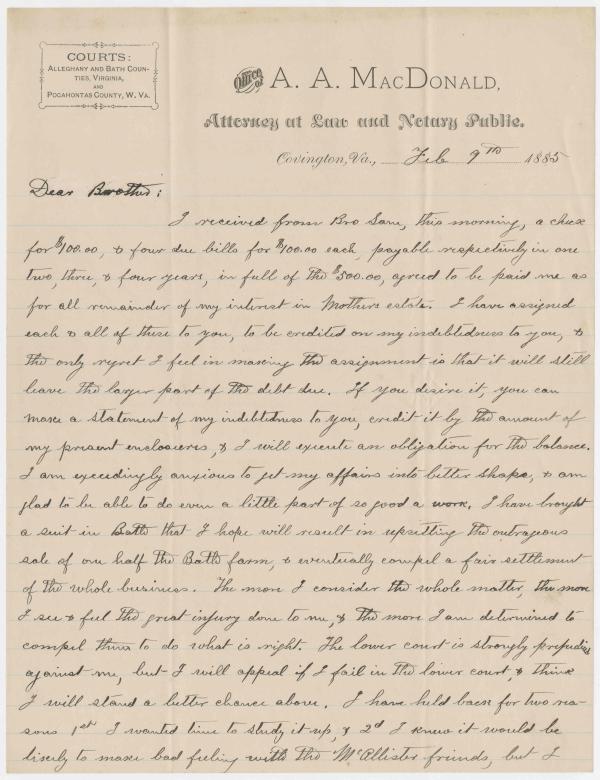 COURTS:
ALLEGHANY AND BATH COUN-
TIES, VIRGINIA,
AND
POCAHONTAS COUNTY, W. VA.
Office of A. A. MACDONALD,
Attorney at Law and Notary Public.
Covington, Va., Feb 9th 1885
Dear Brother:
I received from Bro Sam, this morning, a check
for $100.00, & four due bills for $100.00 each, payable respectively in one
two, three, & four years, in full of the $500.00, agreed to be paid me as
for all remainder of my interest in Mothers estate. I have assigned
each & all of these to you, to be credited on my indebtedness to you, &
the only regret I feel in making the assignment is that it will still
leave the larger part of the debt due. If you desire it, you can
make a statement of my indebtedness to you, credit it by the amount of
my present enclosures, & I will execute an obligation for the balance.
I am exceedingly anxious to get my affairs into better shape, & am
glad to be able to do even a little part of so good a work. I have brought
a suit in Bath that I hope will result in upsetting the outrageous
sale of one half the Bath farm, & eventually compel a fair settlement
of the whole business. The more I consider the whole matter, the more
I see & feel the great injury done to me, & the more I am determined to
compel them to do what is right. The lower court is strongly prejudiced
against me, but I will appeal if I fail in the lower court, & think
I will stand a better chance above. I have held back for two rea-
sons 1st I wanted time to study it up, & 2d I knew it would be
likely to make bad feeling with the McAllister friends, but I